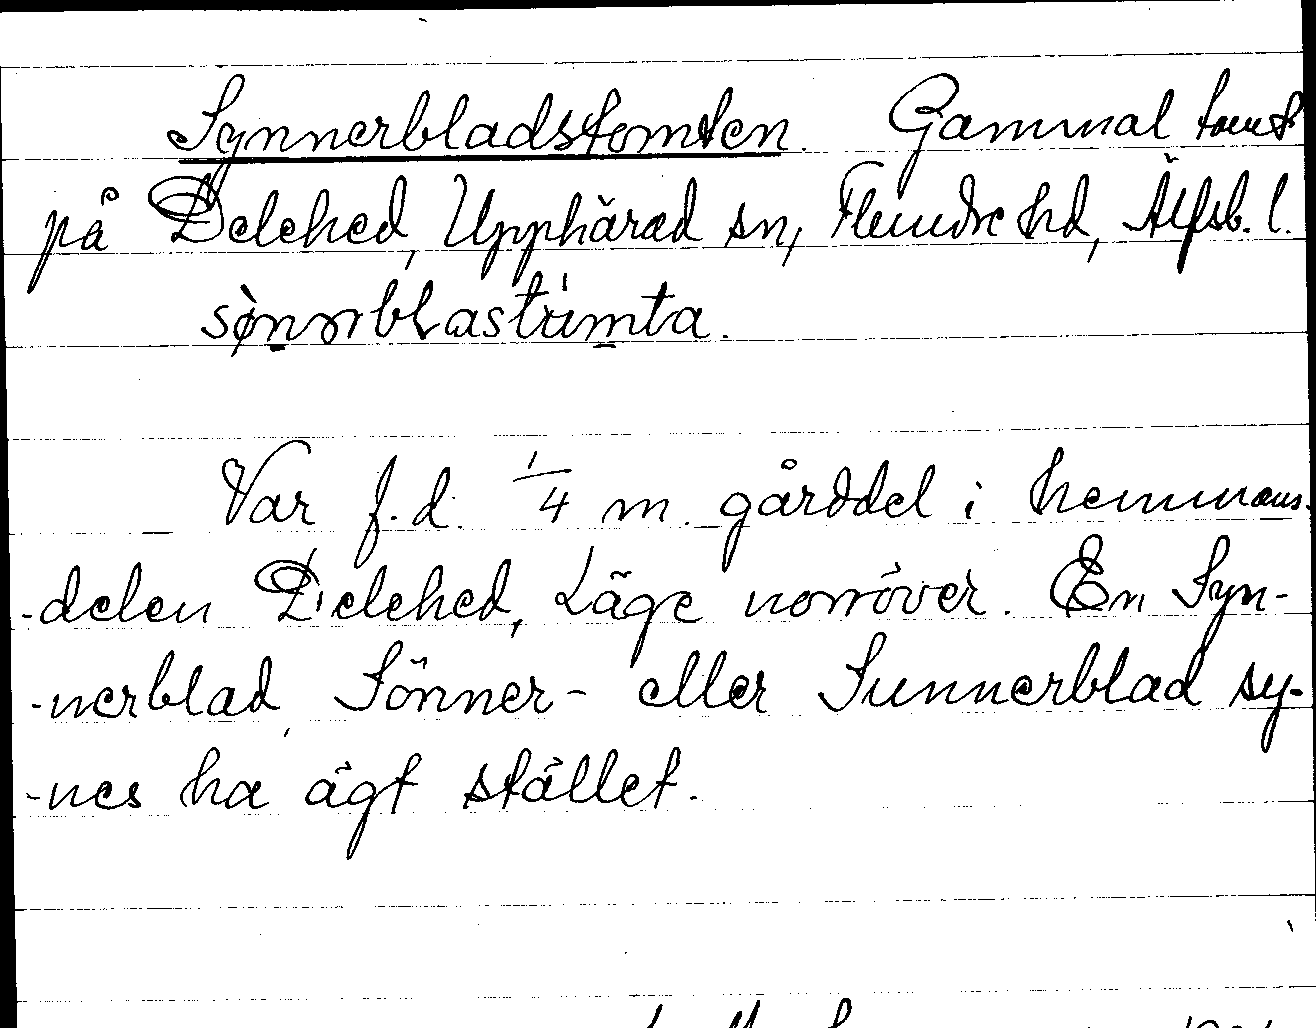 Synnerbladstomten. Gammal tomt
på Delehed, Upphärad sn, Flundre hd, Älfsb. l.
sønnrblastùmta.
Var f.d. 1/4 m. gårddel i hemmans-
-delen Delehed, Läge norröver. En Syn-
-nerblad, Sönner- eller Sunnerblad sy-
-nes ha ägt stället.